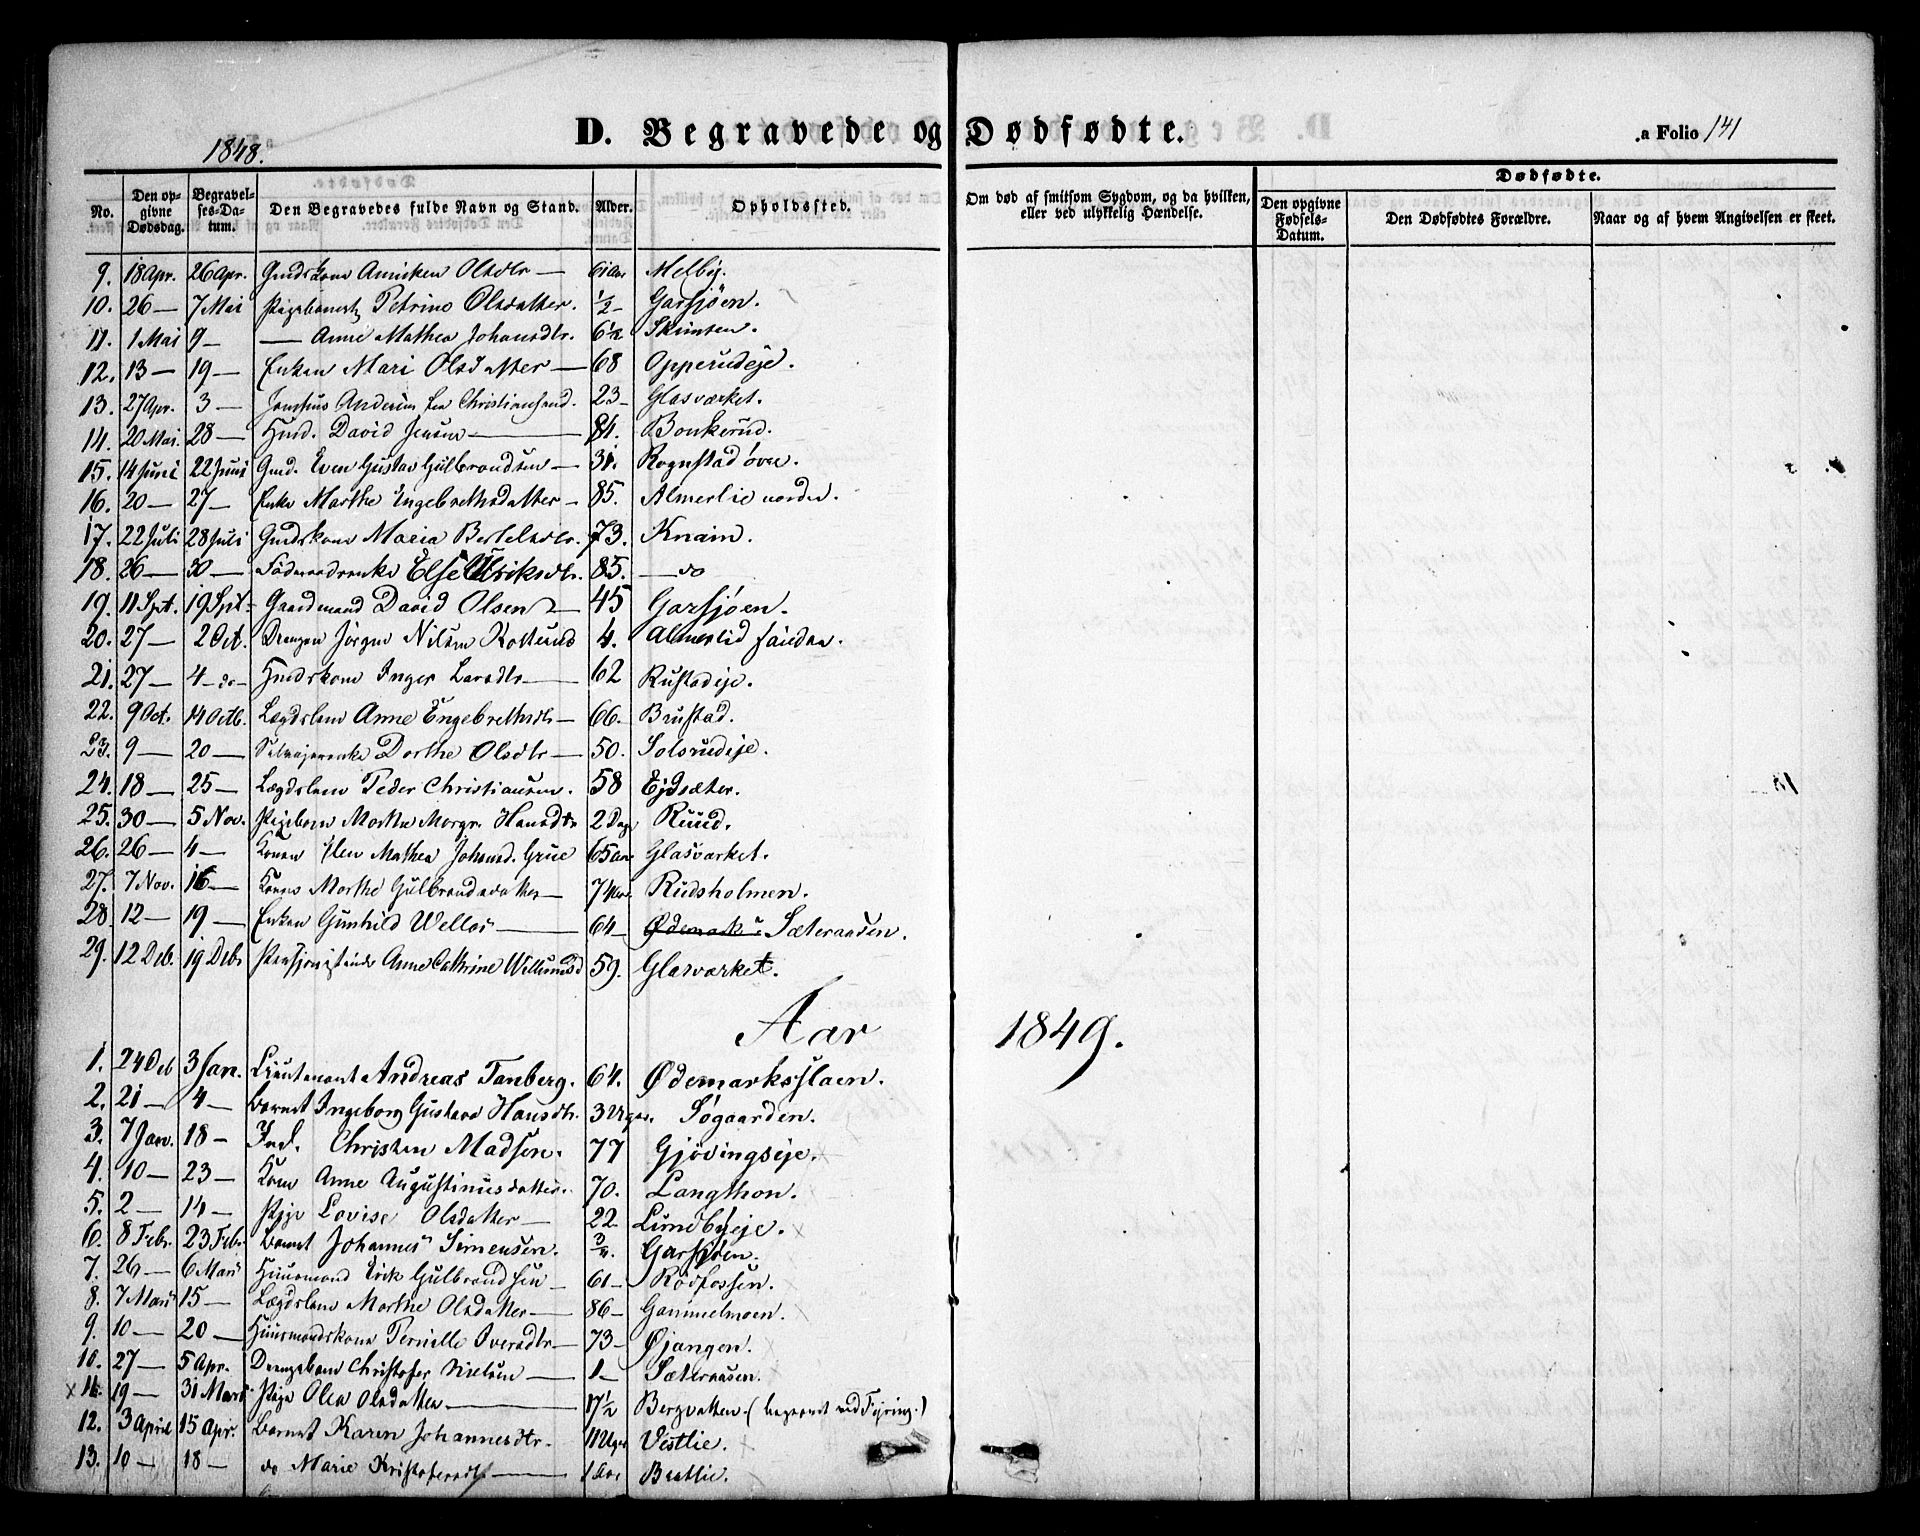 1848.
D. Begravede og Dødfødte.
a Folio 141
No.
Den opgivne Dødsdag.
Begravelses-Datum.
Den Begravedes fulde Navn og Stand.
Alder.
Opholdssted.
Om død af smitsom Sygdom, og da hvilken, eller ved ulykkelig Hændelse.
Dødfødte.
Den opgivne Fødsels-Datum.
Den Dødfødtes Forældre.
Naar og af hvem Angivelsen er skeet.
9. 18 Apr. 26 Apr. Olsdtr — 61 Aar Melby.
10. 26 — 7 Mai Pigebarnet Petrine Olsdatter. ½ Garsjøen.
11. 1 Mai 9 — — Anne Mathea Johansdtr. 6½ Skinsen.
12. 13 — 19 — Enken Mari Olsdatter — 68 Opperudeje.
13. 27 Apr. 3 — Andersen fra Christiansand. 23 — Glasværket.
14. 20 Mai. 28 — Huusm. David Jensen — 81. Bonkerud.
15. 14 Juni 22 Juni Gmd. Even Gustav Gulbrandsen — 31. Rognstad øvre.
16. 20 — 27 — Enke Marthe Ingebrethsdatter — 85. Almerlie nordre.
17. 22 Juli 28 Juli Gmdskone Maria Bertelsdtr. 73. Knain.
18. 26 — 30 — Føderaadsenke Else Ulriksdtr. 85. — do
19. 11 Spt. 19 Spt. Gaardmand David Olsen — 45 Garsjøen.
20. 27 — 2 Oct. Drengen Jörgen Nilsen 4. Almerlid søndre.
21. 27 — 4 — do — Hmdskone Inger Larsdtr — 62 Rustadeje.
22. 9 Oct. 14 Octb. Lægdslem Anne Engebrethsdtr — 66. Brustad.
23. 9 — 20 — Dorthe Olsdtr — 50. Solsrudeje.
24. 18 — 25 — Lægdslem Peder Christiansen. 58 Ejdsæter.
25. 30 — 5 Nov. Pigebarn Marthe Margr. Hansdtr 2 Dage Ruud.
26. 26 — 4 — Konen Mathea Johansd. Grue 65 Aar Glasværket.
27. 7 Nov. 16 — Konen Marthe Gulbrandsdatter — 74 Rudsholmen.
28. 12 — 19 — Enken Gunhild — 64 — Ødemark Sæteraasen.
29. 12 Deb. 19 Debr Anne Cathrine 59. Glasværket.
Aar 1849.
1. 24 Deb 3 Jan. Lieutenant Andreas Tanberg. 64. Ødemarksslaen.
2. 21 — 4 — Barnet Ingeborg Gustava Hansdtr. 3 Uger. Søgaarden.
3. 7 Jan. 18 — Ind. Christen Madsen. 77 Gjøvingseje.
4. 10 — 23 — Kone Anne Augustinusdatter. 70. Langthon.
5. 2 — 14 — Pige Lovise Olsdatter — 22 Lundbyeje.
6. 8 Febr. 23 Febr. Barnet Johannes Simensen. ¾. Garsjøen.
7. 26 — 6 Mars Huusmand Erik Gulbrandsen — 61 — Rødfossen.
8. 7 Mars 15 — Lægdslem Marthe Olsdatter — 86 — Gammelmoen.
9. 10 — 20 — Huusmandskone Pernille Iversdtr — 73 — Øjangen.
10. 27 — 5 Apr. Drengebarn Christofer Nielsen — 1 — Sæteraasen.
x 11. 19 — 31 Mars Pige Olea Olsdatter — 17½ Bergvatten. (begravet ved Fjøring.)
12. 3 April 15 Apr. Barnet Karen Johannesdtr. 11 Uger Vestlie.
13. 10 — 18 — do Marie Kristofersdtr — 1 Aar Bratlie.